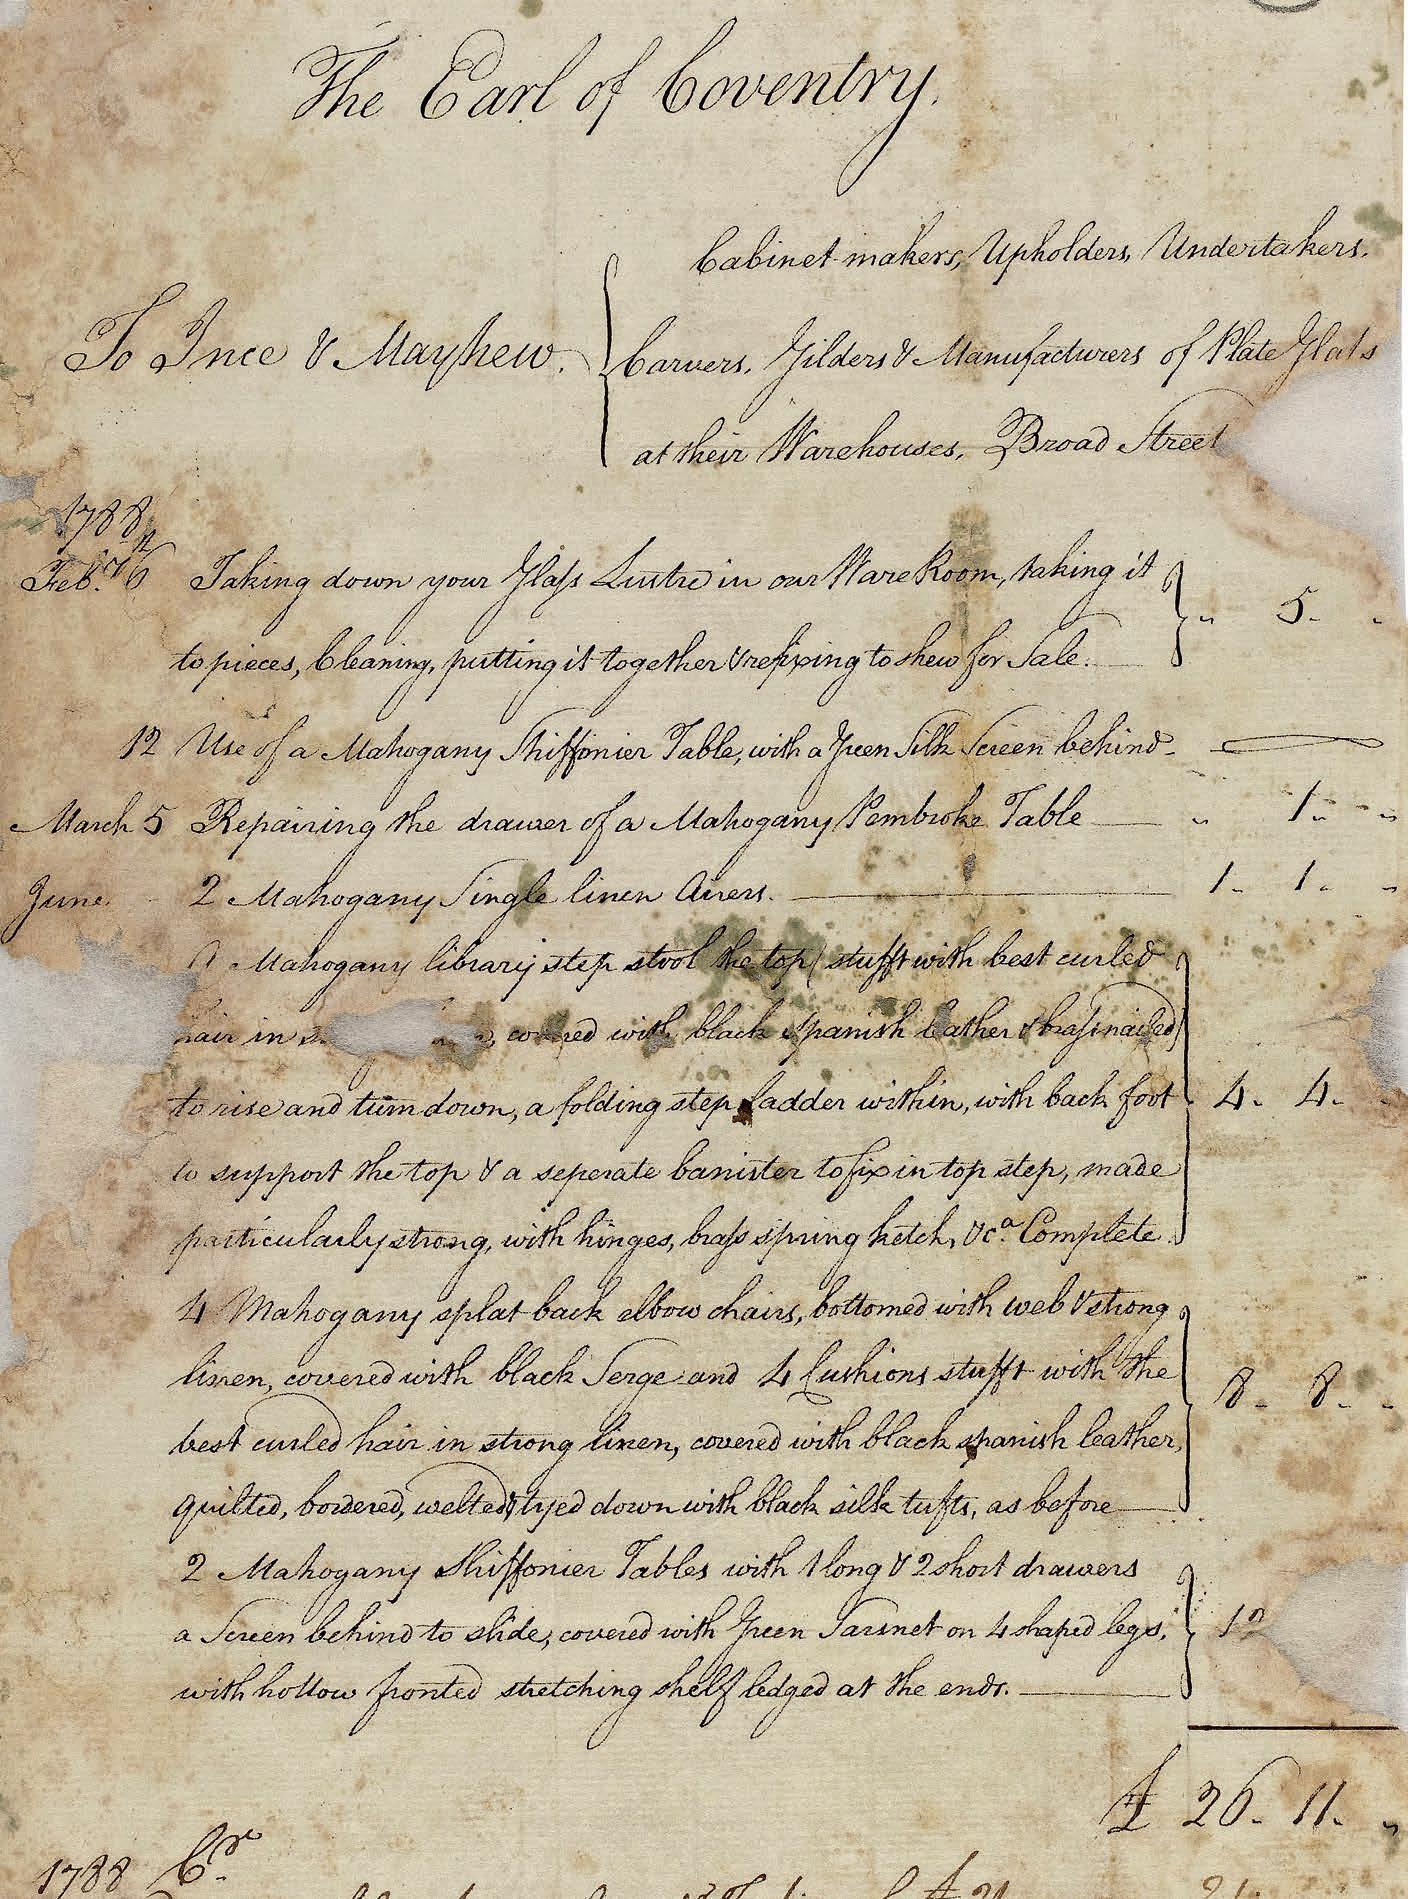 The Earl of Coventry.
Cabinet-makers, Upholders, Undertakers.
To Ince & Mayhew. Carvers, Gilders & Manufacturers of Plate Glass
at their Warehouses, Broad Street
1788
Feb.ry 6 Taking down your Glass Lustre in our Ware Room, taking it
to pieces, Cleaning, putting it together & refixing to shew for Sale. " 5. "
12 Use of a Mahogany Shiffonier Table, with a Green Silk Screen behind
March 5 Repairing the drawer of a Mahogany Pembroke Table " 1. "
June 2 Mahogany Single linen Airers. 1. 1. "
A Mahogany library step stool the top (stufft with best curled
hair in covered with black Spanish leather & brass nailed)
to rise and turn down, a folding step ladder within, with back foot 4. 4.
to support the top & a seperate banister to fix in top step, made
particularly strong, with hinges, brass spring ketch, &c.a Complete.
4 Mahogany splat back elbow chairs, bottomed with web & strong
linen, covered with black Serge and 4 Cushions stufft with the 8. 8. "
best curled hair in strong linen, covered with black spanish leather,
quilted, bordered, welted & tyed down with black silk tufts, as before
2 Mahogany Shiffonier Tables with 1 long & 2 short drawers
a Screen behind to slide, covered with Green Sarsnet on 4 shaped legs, 12
with hollow fronted stretching shelf ledged at the ends.
£ 26. 11. "
1788 Cr.